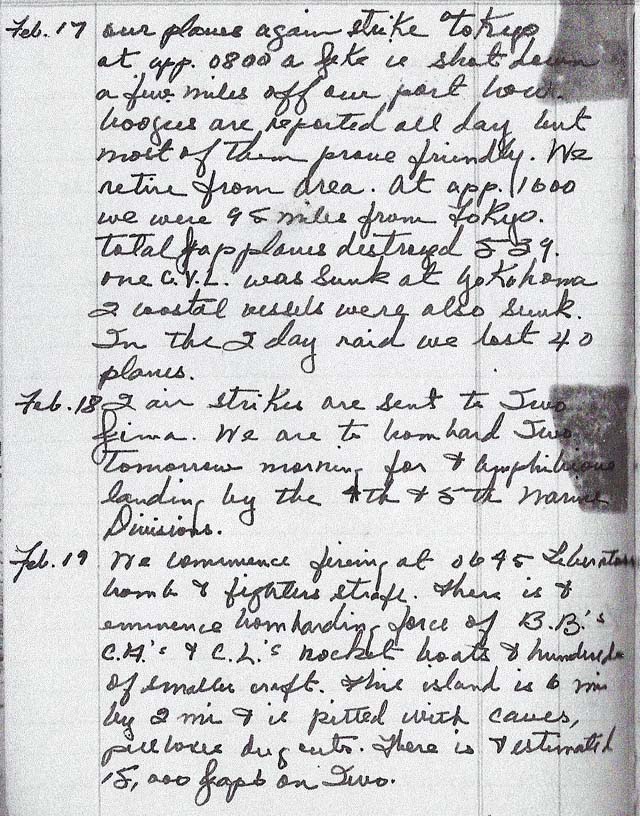 Feb. 17 our planes again strike Tokyo
at app. 0800 a Jake is shot down
a few miles off our port bow.
boogies are reported all day but
most of them prove friendly. We
retire from area. At app. 1600
we were 95 miles from Tokyo.
total Jap planes destroyed 539.
one C.V.L. was sunk at Yokohoma
2 coastal vessels were also sunk.
In the 2 day raid we lost 40
planes.
Feb. 18 2 air strikes are sent to Iwo
Jima. We are to bombard Iwo
tomorrow morning for & amphibious
landing by the 4th & 5th Marine
Divisions.
Feb. 19 We commence fireing at 0645 Liberators
bomb & fighters strafe. There is &
eminence bombarding force of B.B.'s
C.A.'s & C.L.'s rocket boats & hundreds
of smaller craft. This island is 6 mi
by 2 mi & is pitted with caves,
pillboxes dug outs. There is & estimated
15,000 Japs on Iwo.